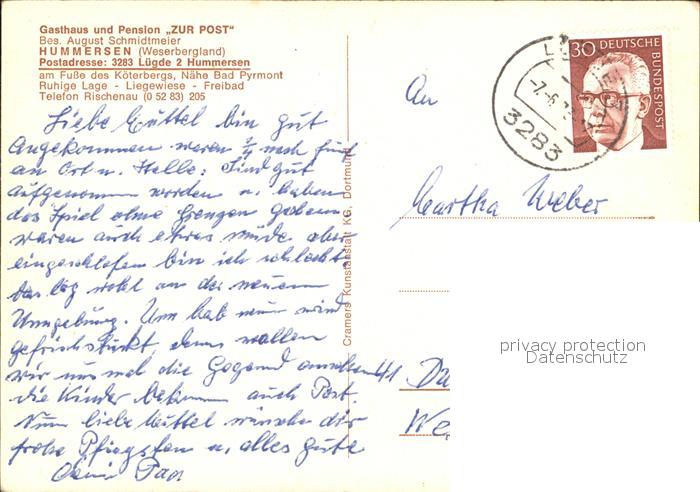 Gasthaus und Pension „ZUR POST"
Bes. August Schmidtmeier
HUMMERSEN (Weserbergland)
Postadresse: 3283 Lügde 2 Hummersen
am Fuße des Köterbergs, Nähe Bad Pyrmont
Ruhige Lage - Liegewiese - Freibad
Telefon Rischenau (0 52 83) 205
Liebe Muttel bin gut
angekommen waren 3/4 nach fünf
an Ort u. Stelle: Sind gut
aufgenommen worden u. haben
das Spiel ohne Grenzen gesehen
waren auch etwas müde aber
eingeschlafen bin ich schlecht
das lag wohl an der neuen
Umgebung. Um hab nun wird
gefrühstückt, dann wollen
wir uns mal die Gegend ansehen
die Kinder bekommen auch Post.
Nun liebe Muttel wünsche dir
frohe Pfingsten u. alles gute
Cramers Kunstanstalt KG, Dortmund
30 DEUTSCHE
BUNDESPOST
3283
An
Martha Weber
41 Du
We
privacy protection
Datenschutz